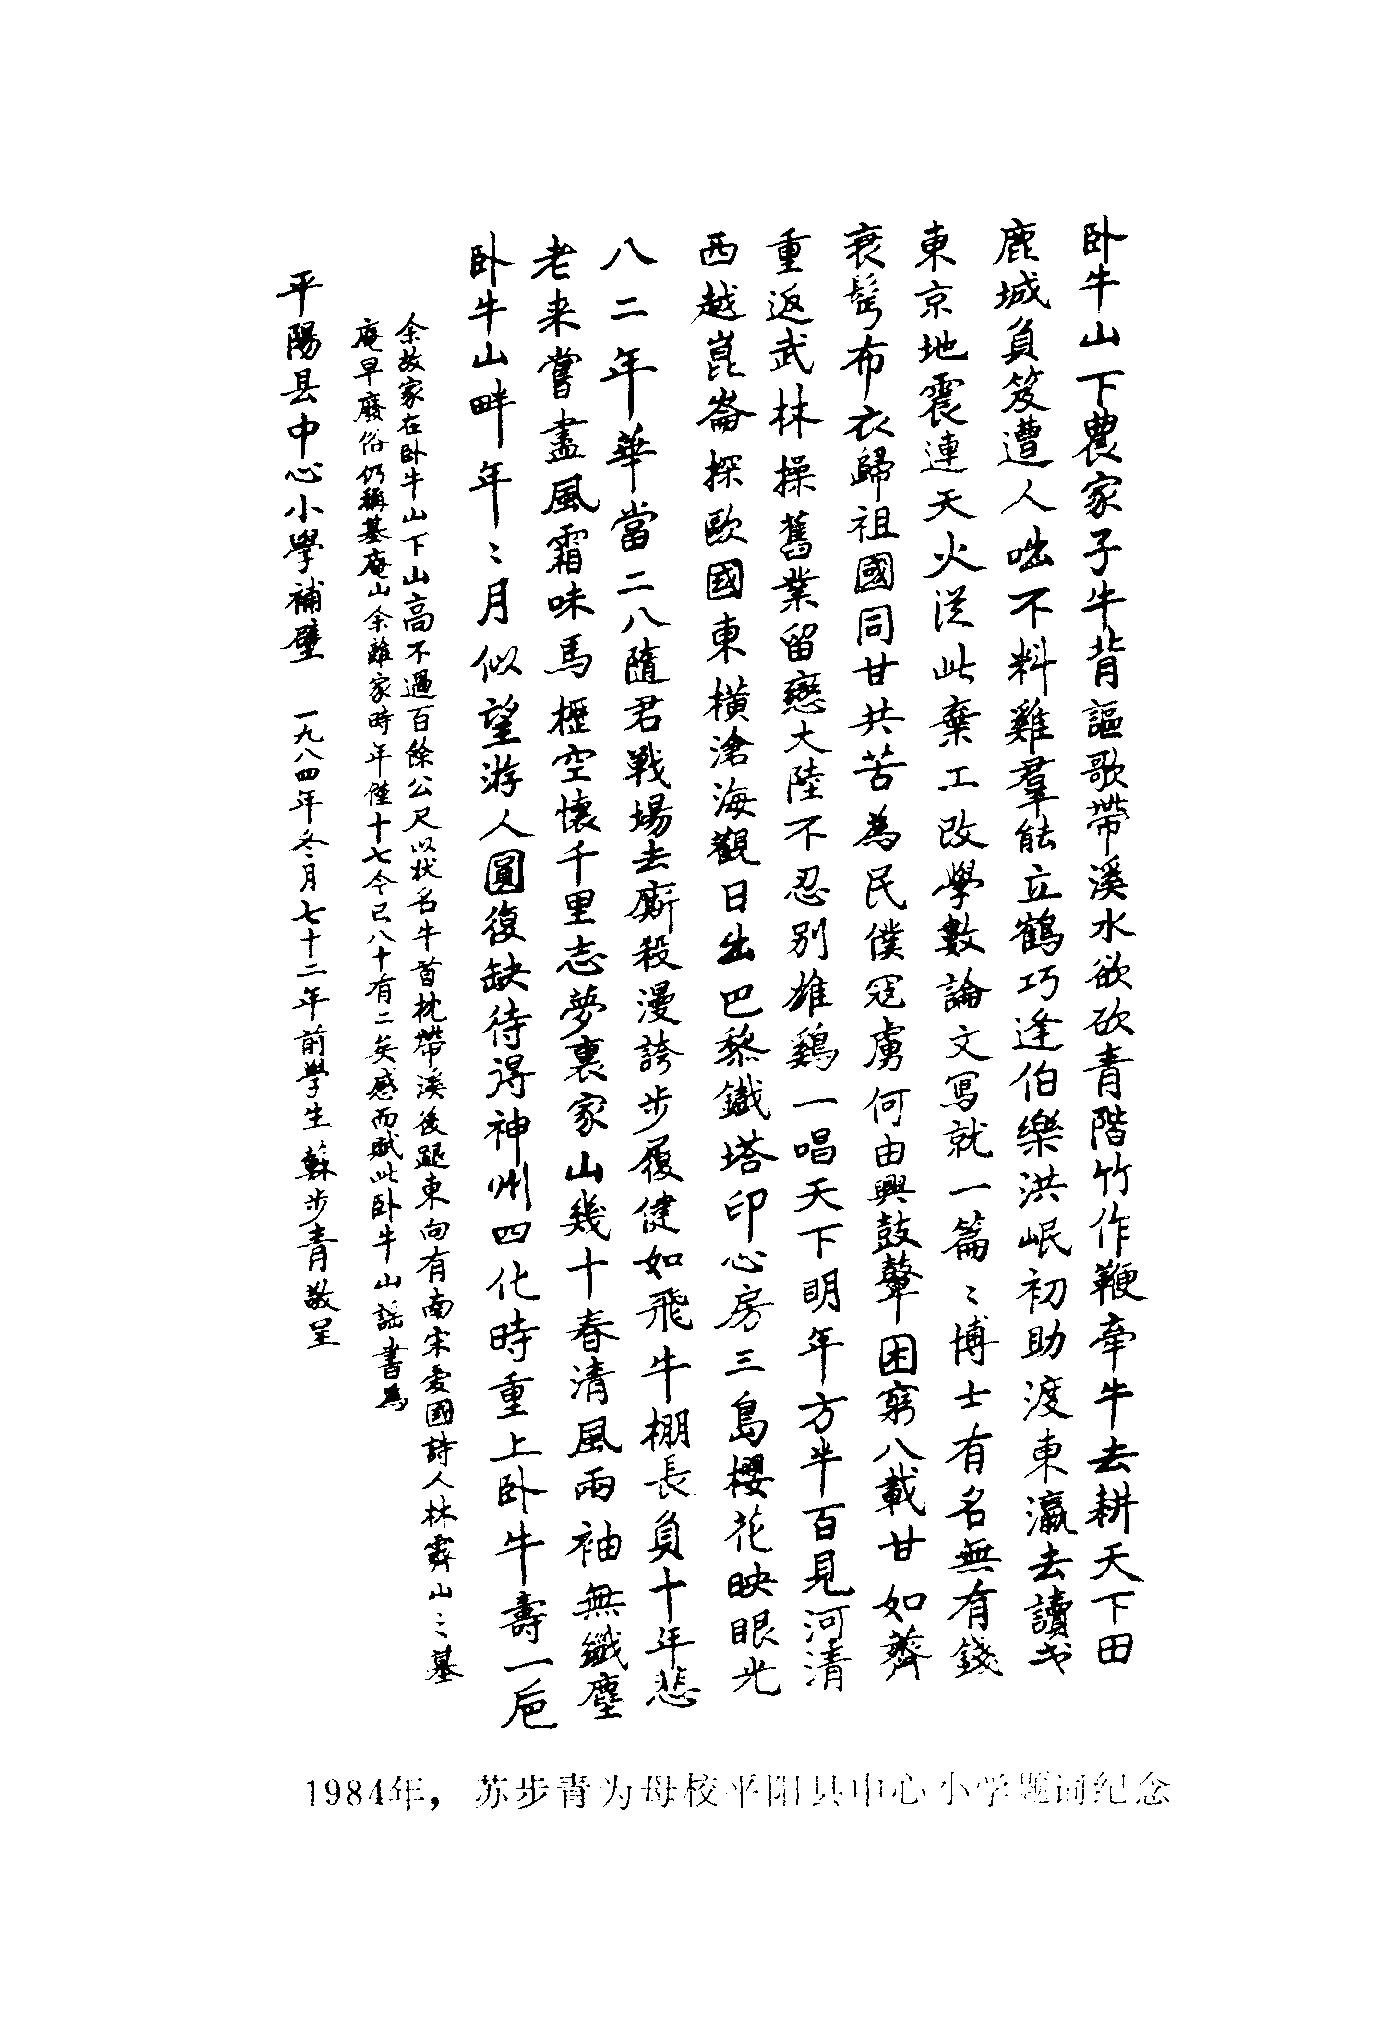 卧牛山下農家子牛背謳歌帶溪水欲砍青階竹作鞭牽牛去耕天下田
鹿城負笈遭人咄不料雞羣能立鶴巧逢伯樂洪岷初助渡東瀛去讀書
東京地震連天火從此棄工改學數論文寫就一篇〻博士有名無有錢
衰髩布衣歸祖國同甘共苦為民僕寇虜何由興鼓鼙困窮八載甘如薺
重返武林操舊業留戀大陸不忍别雄鷄一唱天下明年方半百見河清
西越崑崙探歐國東橫滄海觀日出巴黎鐵塔印心房三島櫻花映眼光
八二年華當二八隨君戰場去廝殺漫誇步履健如飛牛棚長負十年悲
老来嘗盡風霜味馬櫪空懷千里志夢裏家山幾十春清風兩袖無纖塵
卧牛山畔年〻月似望游人圓復缺待得神州四化時重上卧牛壽一巵
余故家在卧牛山下山高不過百餘公尺以状名牛首枕帶溪後腿東向有南宋爱國詩人林霽山〻墓
庵早廢俗仍稱墓庵山余離家時年僅十七今已八十有二矣感而賦此卧牛山謡書為
平陽县中心小學補壁 一九八四年冬月七十二年前學生蘇步青敬呈
1984年，苏步青为母校平阳县中心小学题词纪念